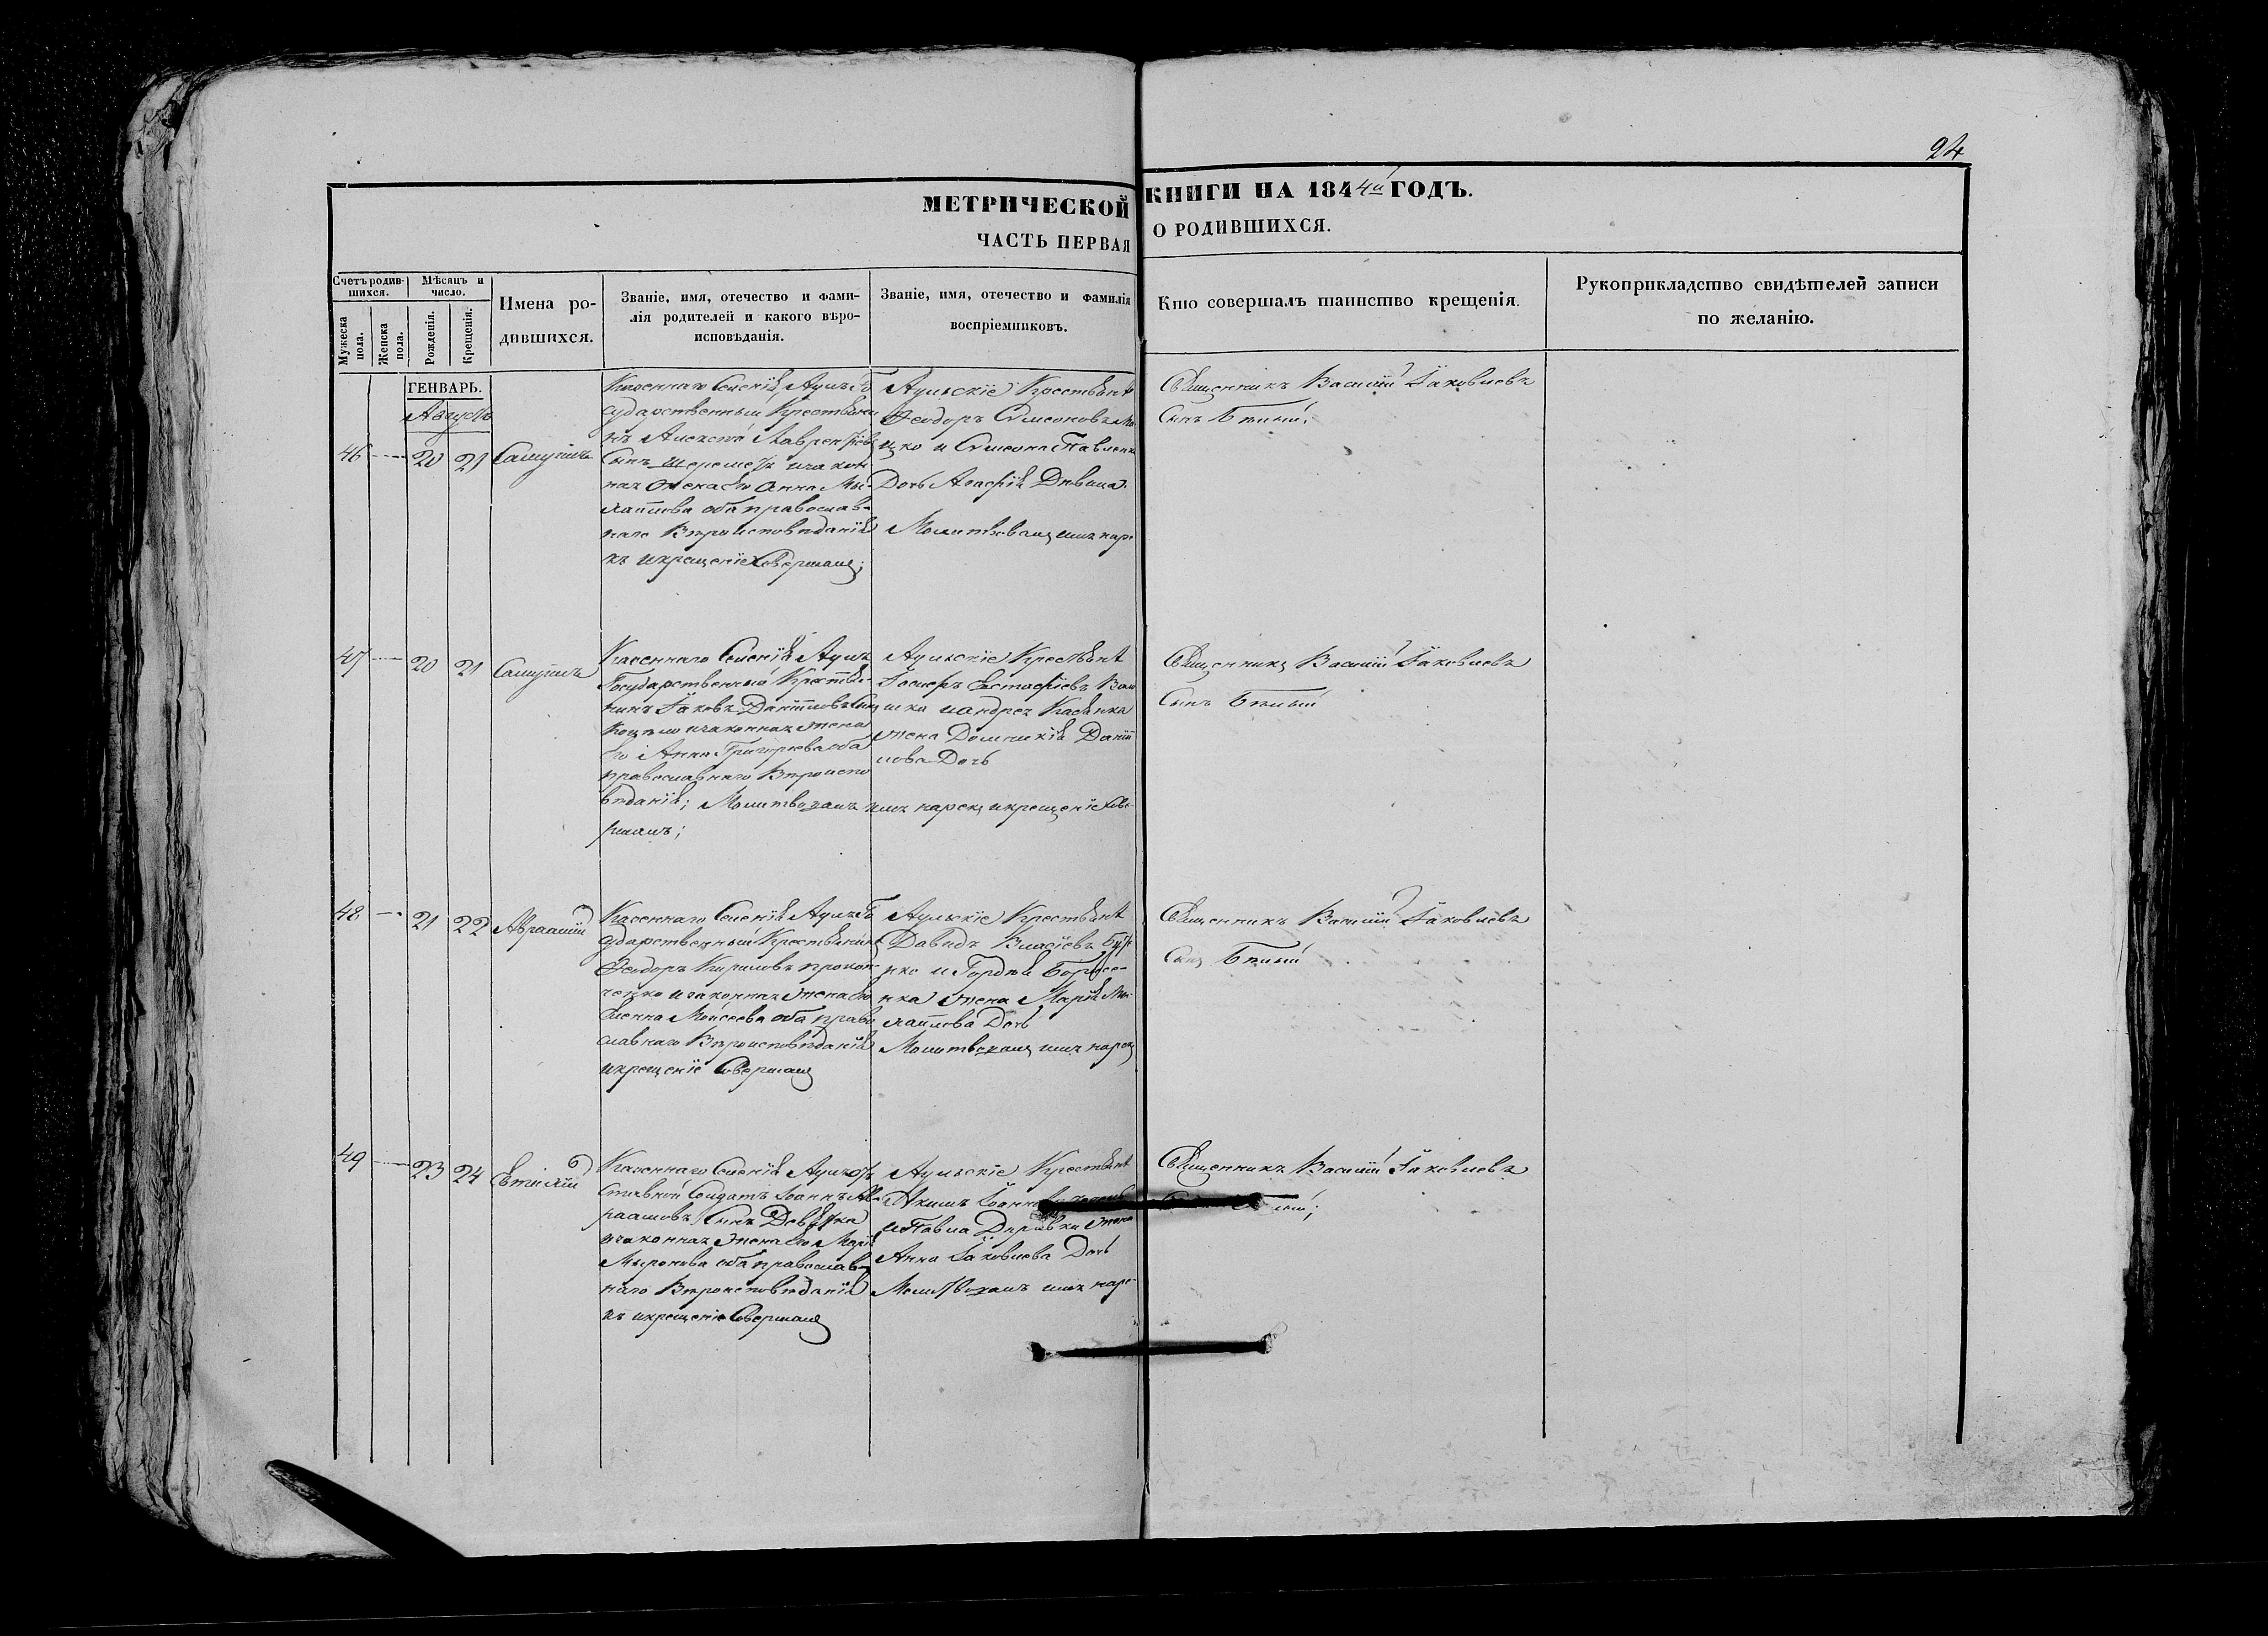 24
МЕТРИЧЕСКОЙ КНИГИ НА 1844й ГОДЪ.
ЧАСТЬ ПЕРВАЯ О РОДИВШИХСЯ.
Счетъ родив-
шихся.
Мужеска
пола.
Женска
пола.
Мѣсяцъ и
число.
Рожденія.
Крещенія.
Имена ро-
дившихся.
Званіе, имя, отечество и фами-
лія родителей и какого вѣро-
исповѣданія.
Званіе, имя, отечество и фамилія
воспріемниковъ.
Кто совершалъ таинство крещенія.
Рукоприкладство свидѣтелей записи
по желанію.
ГЕНВАРЬ.
Августъ
46
20 21
Самуилъ
Казеннаго Селенія Аулъ Го
сударственный Крестьяни
нъ Алексѣй Лаврентіевъ
Сынъ Шереметъ и закон
ная жена его Анна Ми-
хаилова оба православ-
наго Вѣроисповѣданія
къ и крещеніе Совершалъ;
Аульскіе Крестьяне
Ѳеодоръ Симеоновъ
цко и Симеона Павленка
Дочь Агафія Дѣвица.
Молитвовалъ имя наре
Священникъ Василій Іаковлевъ
Сынъ Бѣлый;
47
20 21
Самуилъ
Казеннаго Селенія Аулъ
Государственный Крестья-
нинъ Іаковъ Даніиловъ Сынъ
и законная жена
его Анна Григорьева оба
православнаго Вѣроиспо
вѣданія; Молитвовалъ имя нарекъ и крещеніе Сове
ршалъ;
Аульскіе Крестьяне
Іосифъ Евстафіевъ
шка и Андрея Касянка
жена Домникія Даніи
лова Дочь
Священникъ Василій Іаковлевъ
Сынъ Бѣлый
48
21 22
Авраамій
Казеннаго Селенія Аулъ Го
сударственный Крестьянинъ
Ѳеодоръ Кириловъ Прокоп-
ченко и законная жена его
Елена Моисеева оба право
славнаго Вѣроисповѣданія
и крещеніе Совершалъ
Аульскіе Крестьяне
Давидъ Власіевъ
рко и Гордѣя Борисе-
нка жена Марія Ми-
хаилова Дочь
Молитвовалъ имя нарекъ
Священникъ Василій Іаковлевъ
Сынъ Бѣлый
49
23 24
Казеннаго Селенія Аулъ От
ставной Солдатъ Іоаннъ Ав-
раамовъ Сынъ
и законная жена его Марія
Миронова оба православ-
наго Вѣроисповѣданія
къ и крещеніе Совершалъ
Аульскіе Крестьяне
Акимъ
и Павла жена
Анна Іаковлева Дочь
Молитвовалъ имя наре-
Священникъ Василій Іаковлевъ